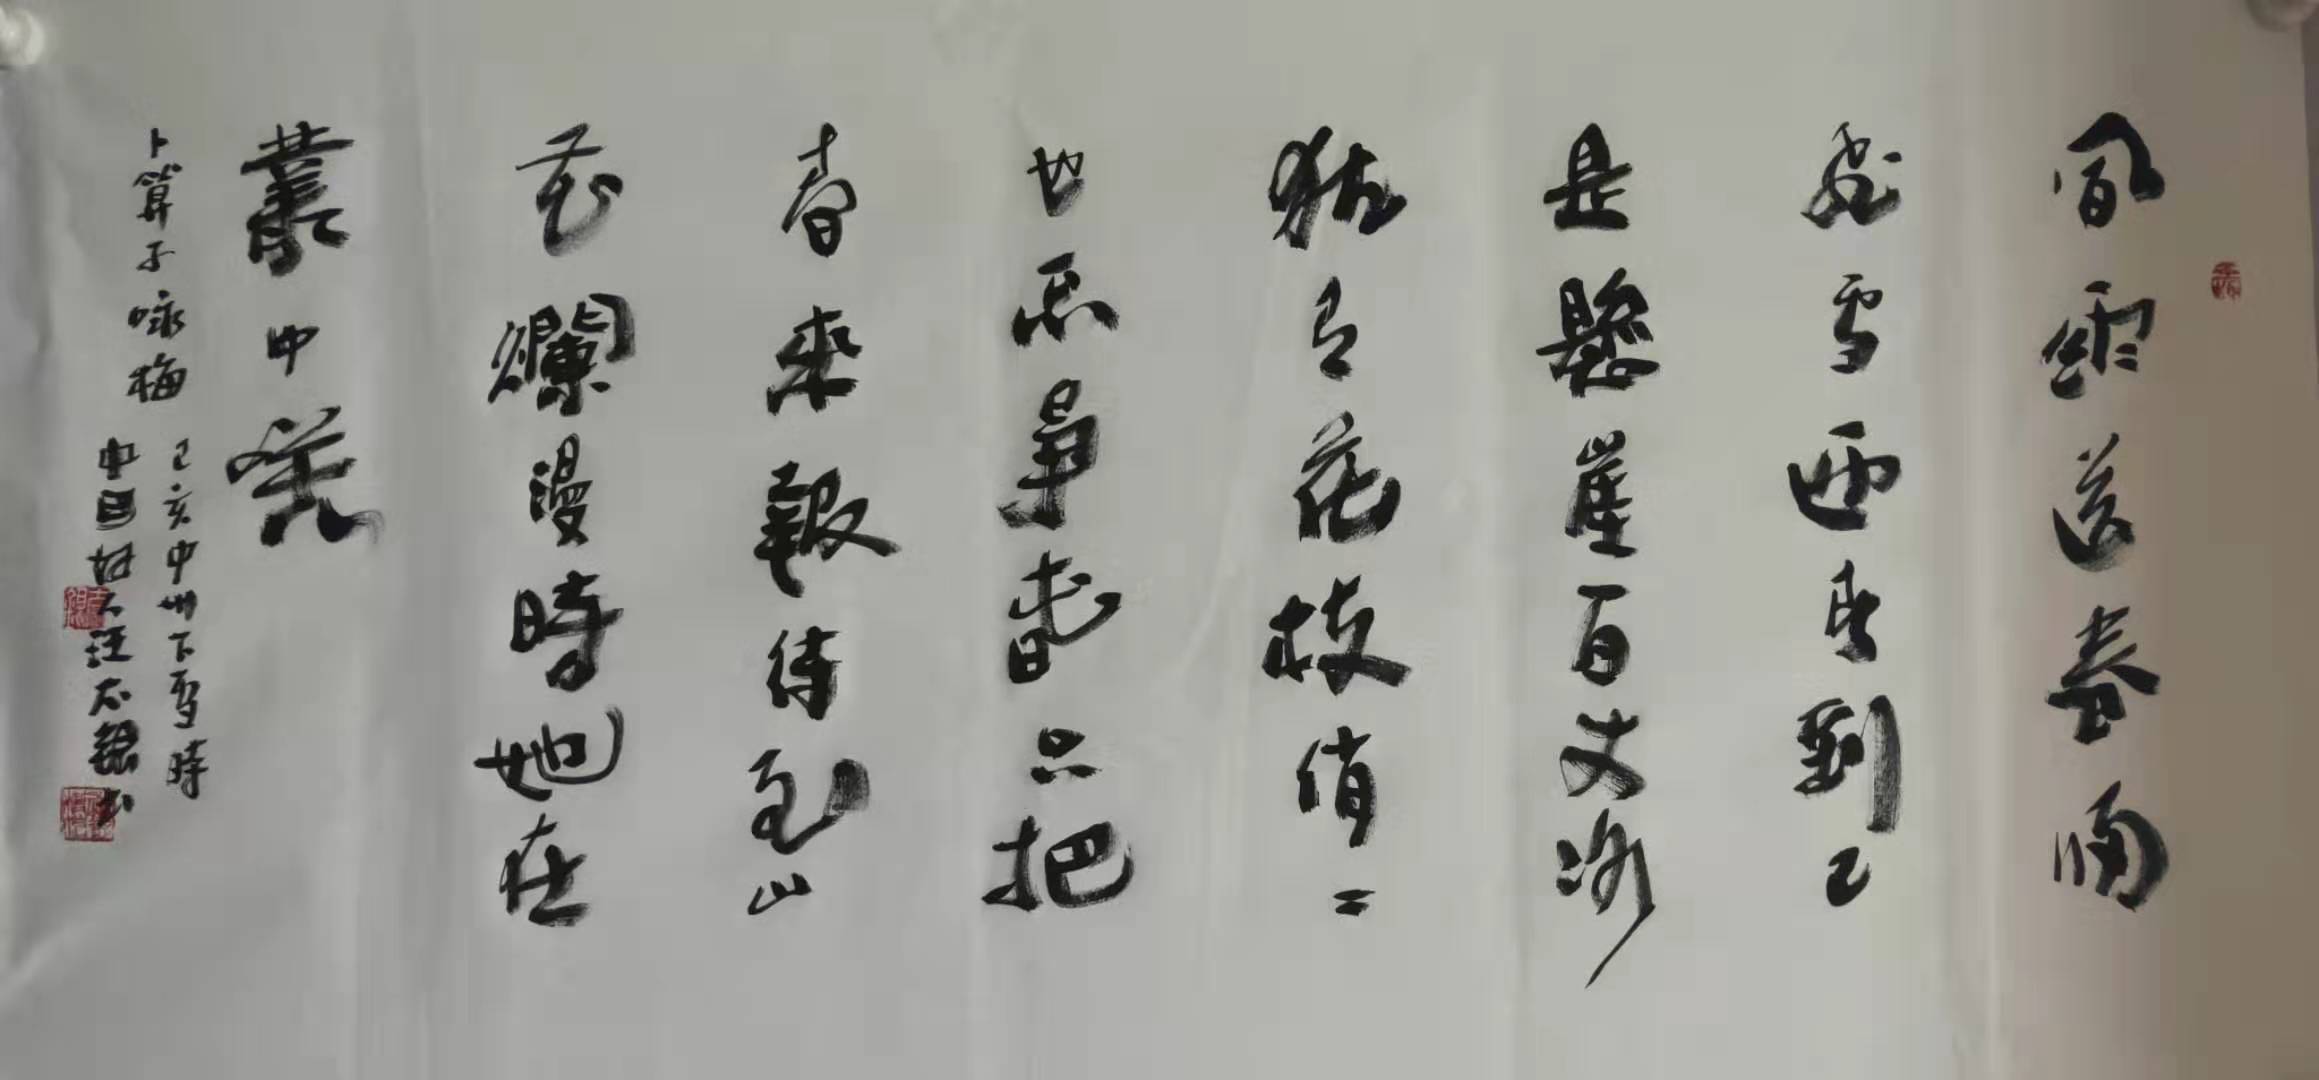 風雨送春歸
飛雪迎春到已
是懸崖百丈冰
猶有花枝俏〻
也不爭春只把
春來報待到山
花爛漫時她在
叢中笑
卜算子咏梅
己亥中州下雪時
中国村人汪志书